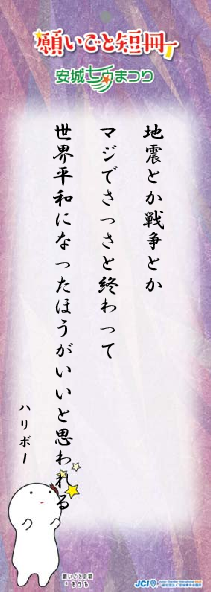 願いごと短冊
安城七夕まつり
地震とか戦争とか
マジでさっさと終わって
世界平和になったほうがいいと思われる
ハリボー
JCI